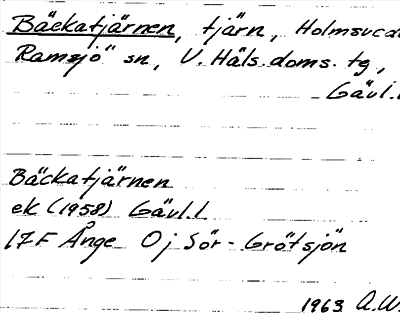 Bäckatjärnen, tjärn, Holmsvea
Ramsjö sn, V. Häls. doms. tg,
Gävl.
Bäckatjärnen
ek (1958) Gävl. l
17F Ånge Oj Sör-Grötsjön
1963 A.W.